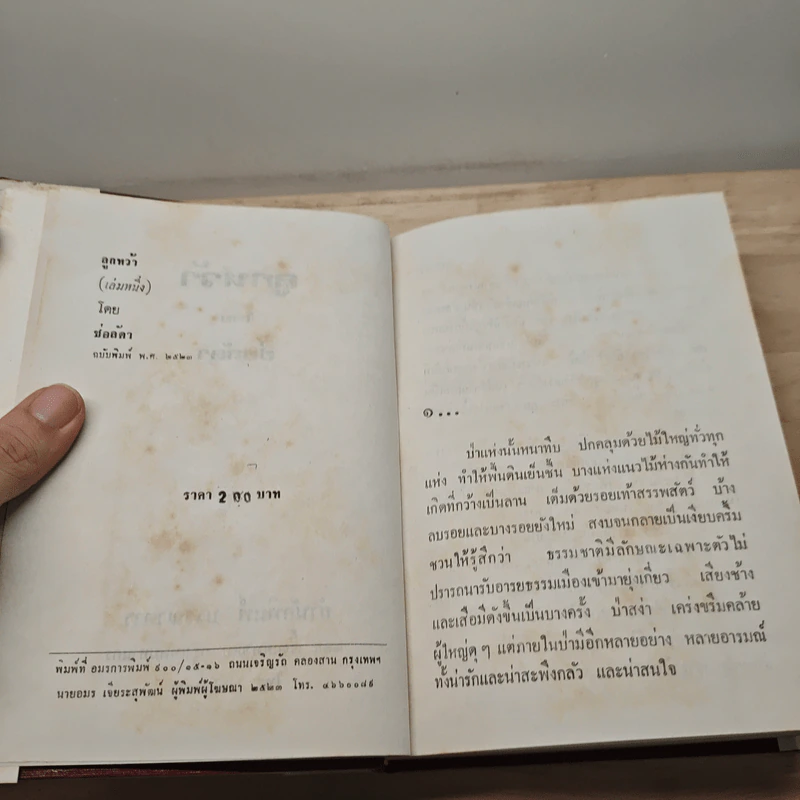 ลูกหว้า
(เล่มหนึ่ง)
โดย
ช่อลัดา
ฉบับพิมพ์ พ.ศ. ๒๕๒๓
ราคา 2 00 บาท
พิมพ์ที่ อมรการพิมพ์ ๙๐๐/๑๕-๑๖ ถนนเจริญรัถ คลองสาน กรุงเทพฯ
นายอมร เจียระสุพัฒน์ ผู้พิมพ์ผู้โฆษณา ๒๕๒๓ โทร. ๔๖๖๐๐๘๖
๑...
ป่าแห่งนั้นหนาทึบ ปกคลุมด้วยไม้ใหญ่ทั่วทุก
แห่ง ทำให้พื้นดินเย็นชื้น บางแห่งแนวไม้ห่างกันทำให้
เกิดที่กว้างเป็นลาน เต็มด้วยรอยเท้าสรรพสัตว์ บ้าง
ลบรอยและบางรอยยังใหม่ สงบจนกลายเป็นเงียบครึ้ม
ชวนให้รู้สึกว่า ธรรมชาติมีลักษณะเฉพาะตัวไม่
ปรารถนารับอารยธรรมเมืองเข้ามายุ่งเกี่ยว เสียงช้าง
และเสือมีดังขึ้นเป็นบางครั้ง ป่าสง่า เคร่งขรึมคล้าย
ผู้ใหญ่ดุ ๆ แต่ภายในป่ามีอีกหลายอย่าง หลายอารมณ์
ทั้งน่ารักและน่าสะพึงกลัว และน่าสนใจ